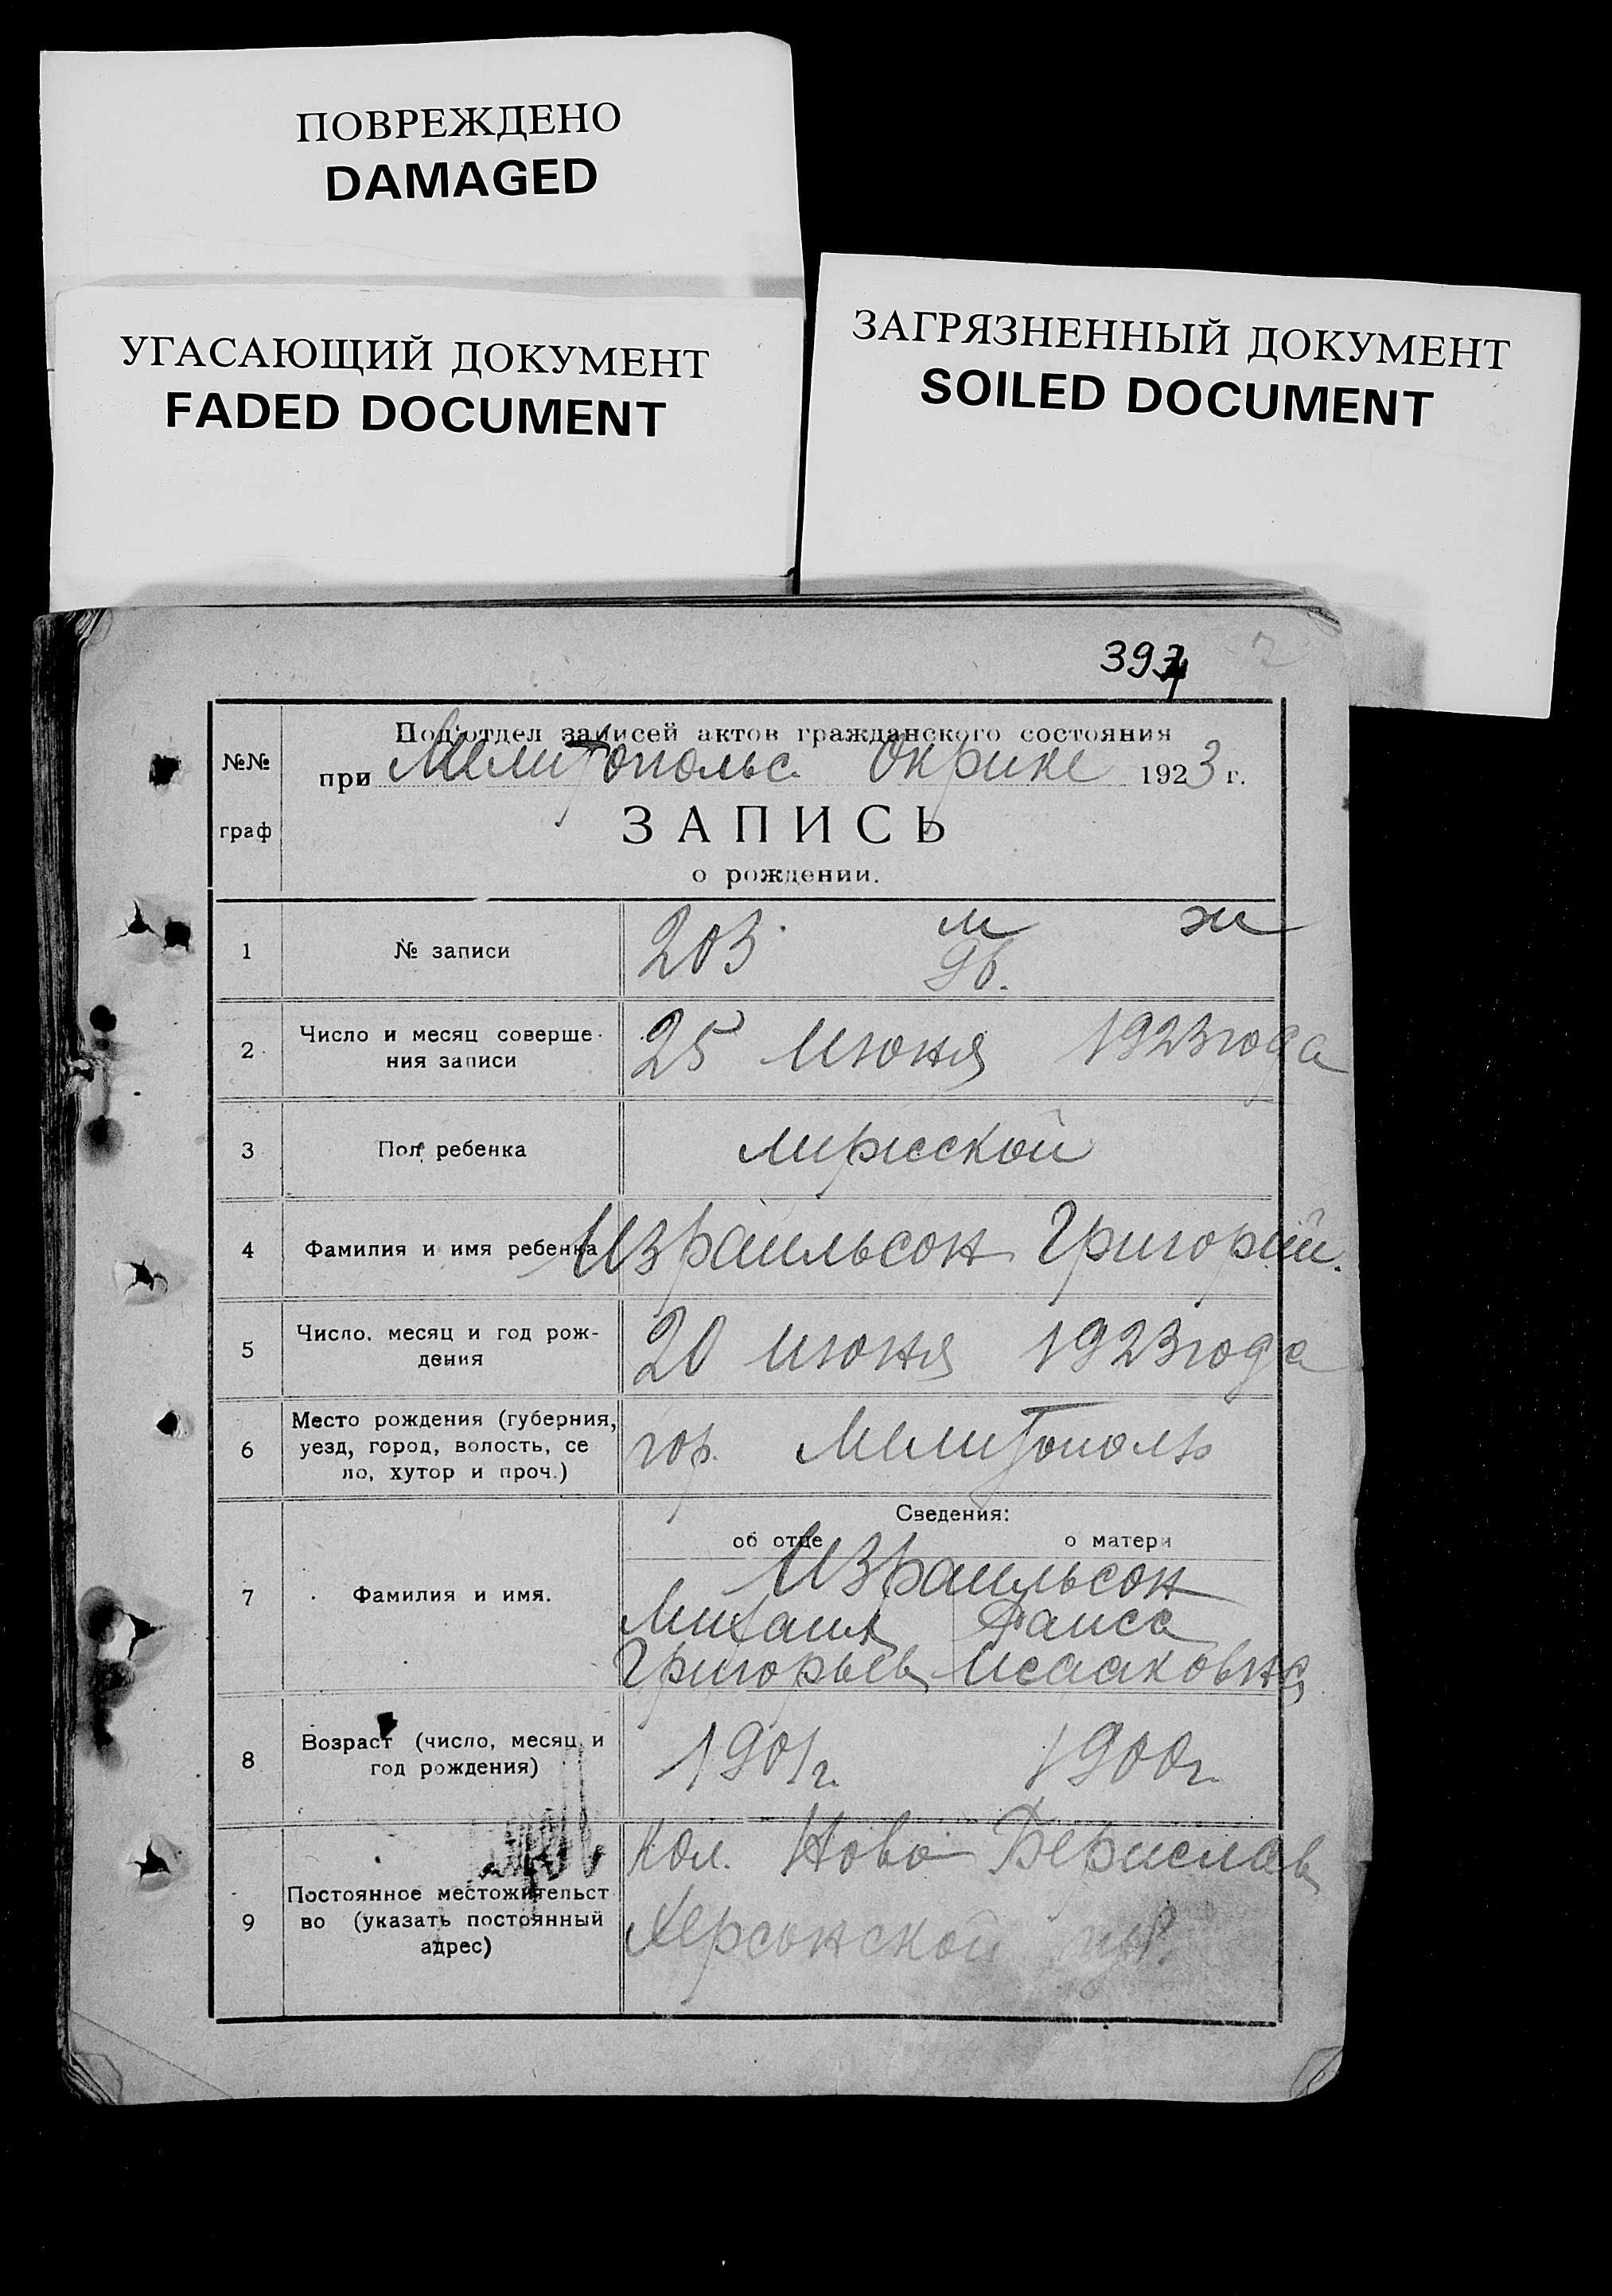 ПОВРЕЖДЕНО
DAMAGED
УГАСАЮЩИЙ ДОКУМЕНТ
FADED DOCUMENT
ЗАГРЯЗНЕННЫЙ ДОКУМЕНТ
SOILED DOCUMENT
394
№№ граф
Под'отдел записей актов гражданского состояния
при Мелитопольс. Окрике 1923 г.
ЗАПИСЬ
о рождении.
1 № записи 203 м ж
96.
2 Число и месяц соверше-
ния записи 25 июня 1923 года
3 Пол ребенка мужской
4 Фамилия и имя ребенка Израильсон Григорий.
5 Число, месяц и год рож-
дения 20 июня 1923 года
6 Место рождения (губерния,
уезд, город, волость, се
ло, хутор и проч.) гор. Мелитополь
Сведения:
об отце о матери
7 Фамилия и имя. Израильсон
Михаил Раиса
Григорьев Исааковна
8 Возраст (число, месяц и
год рождения) 1901 г. 1900 г.
9 Постоянное местожительст
во (указать постоянный
адрес) Кол. Ново Берислав
Херсонской губ.